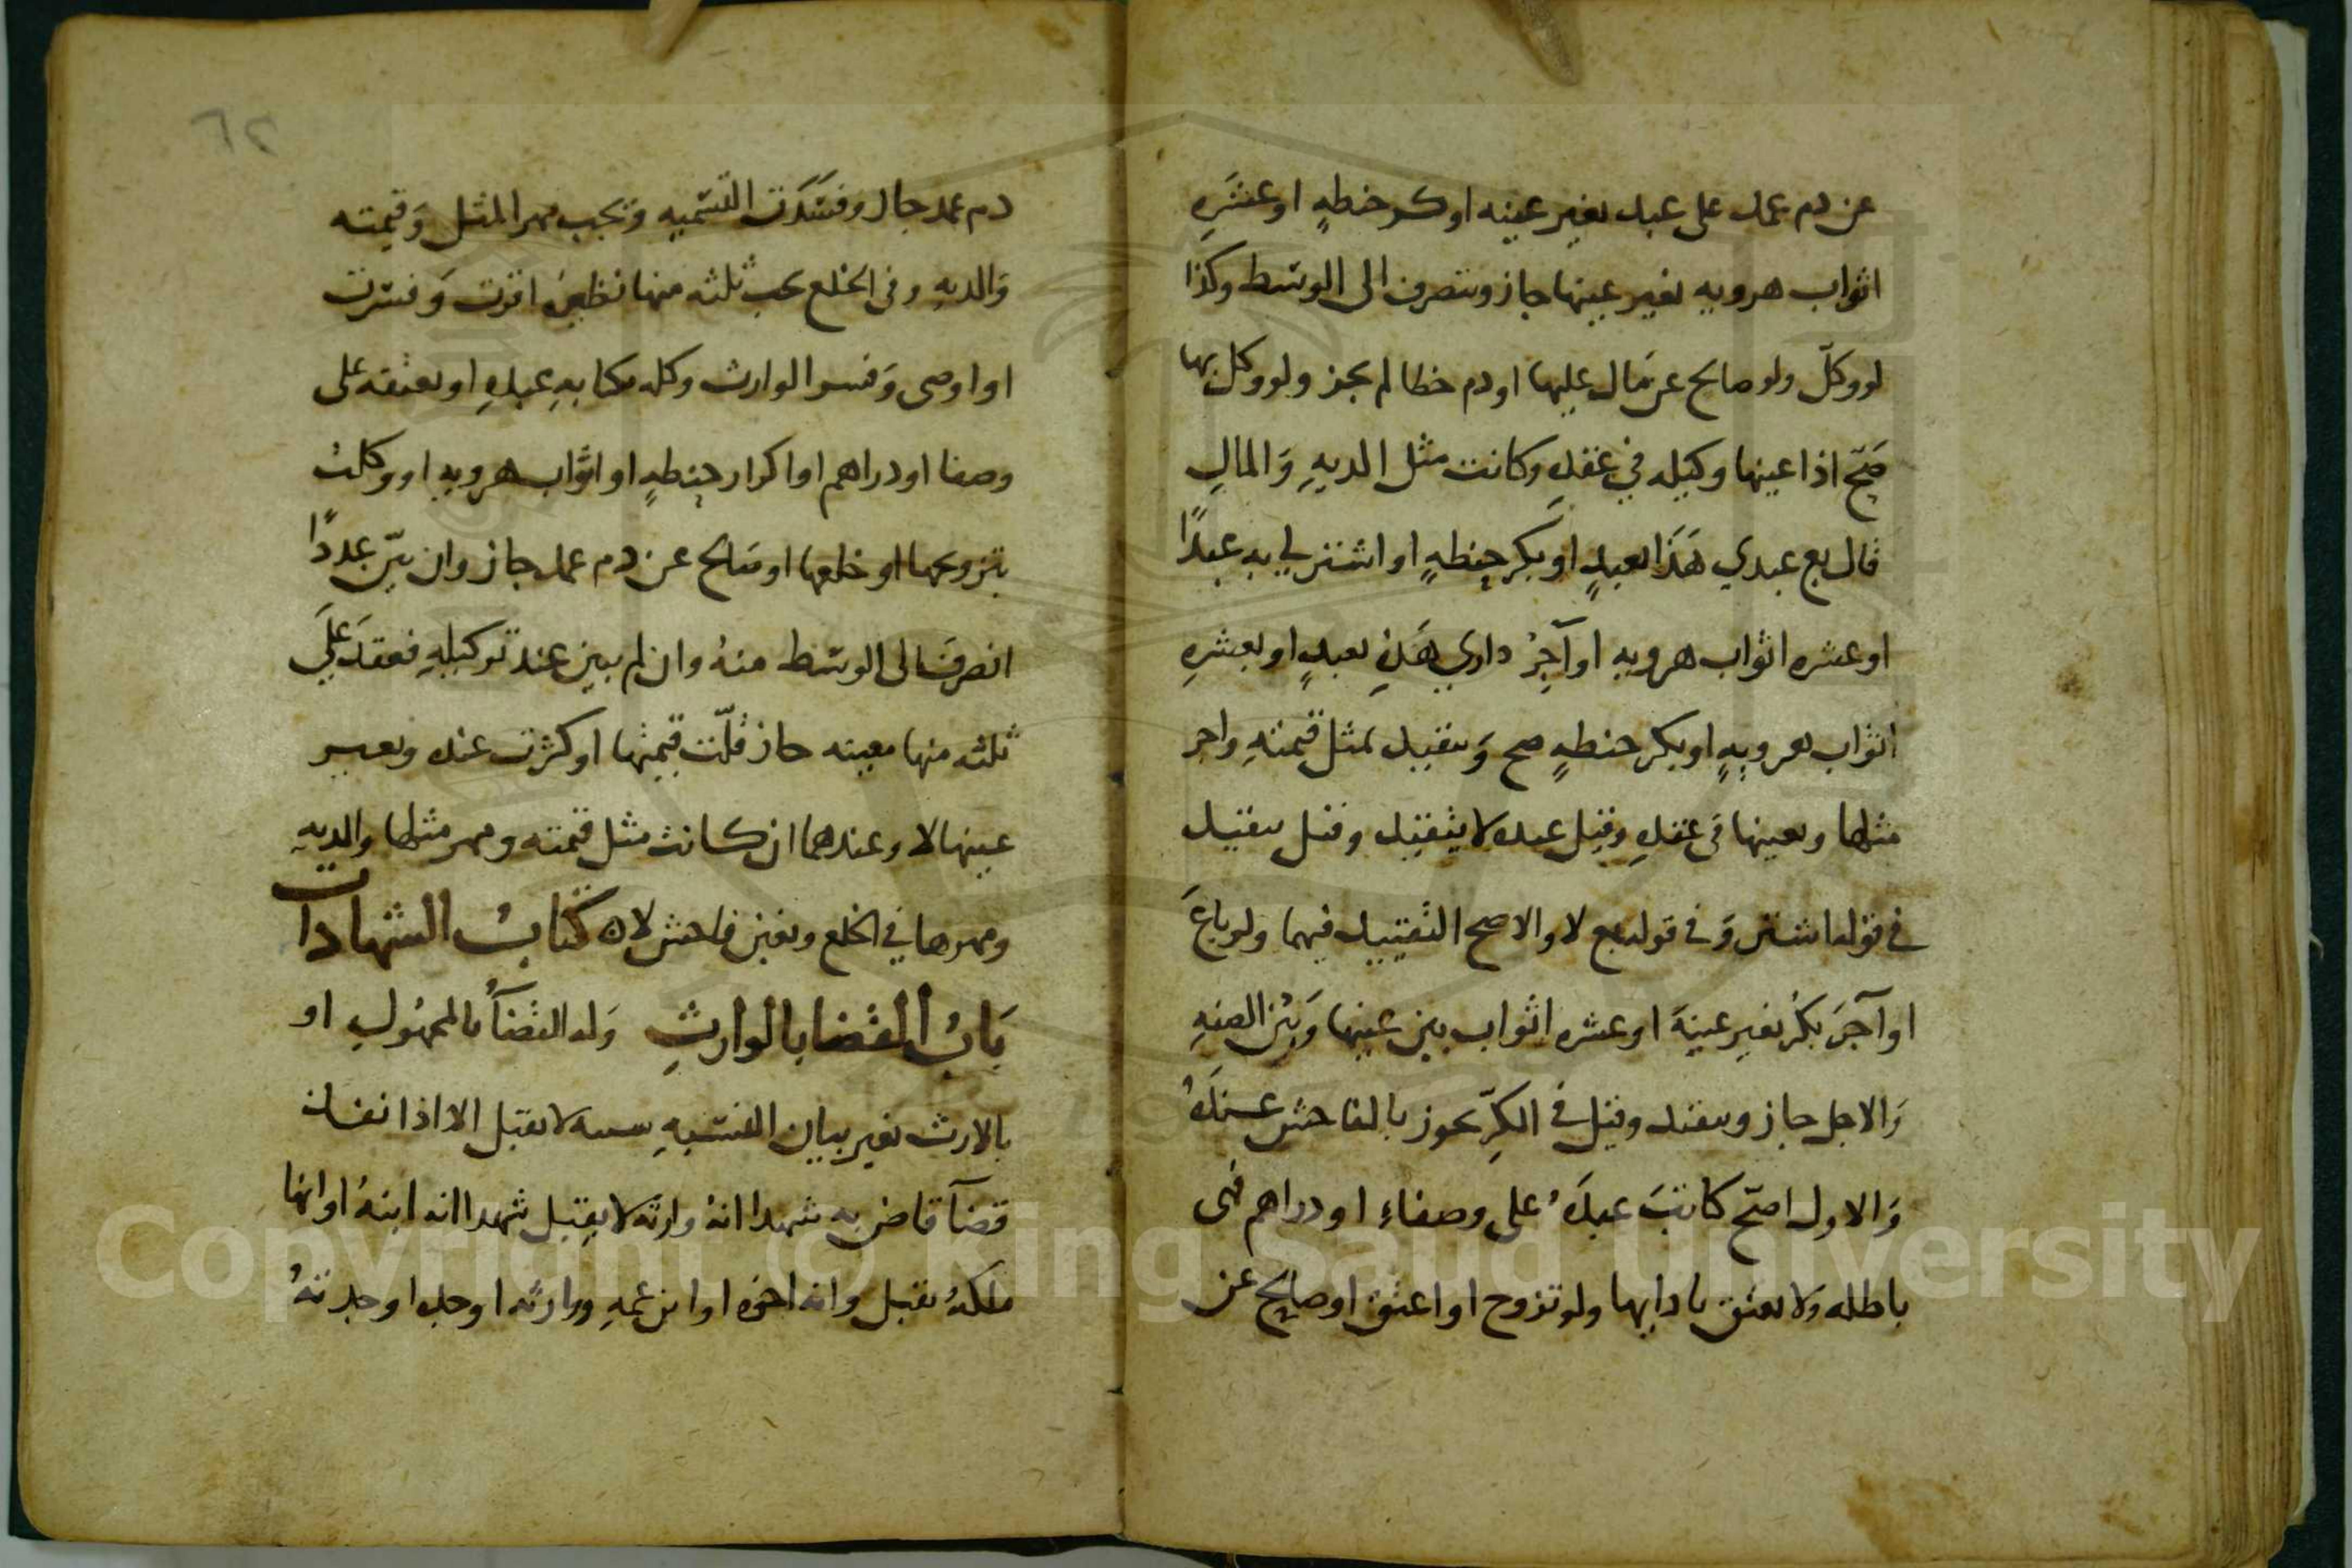 عن دم عمد على عبد بغير عينه او كر حنطهٍ او عشَرهِ
اثواب هرويه بغير عينها جاز وينصرف الى الوسَط وكذا
لو وكلّ ولو صالح عن مَال عليها او دم خطا لم يجز ولو وكل بها
صَحّ اذا عينها وكيله في عقدهِ وكانت مثل الديهِ وَالمالِ
قال بع عبدي هَذا بعبدٍ او بكر حنطهٍ او اشتر لي به عبدًا
او عشره اثواب هرويه او آجِرْ داري هَذهِ بعبدٍ او بعشرهِ
اثواب هرويهٍ او بكر حنطهٍ صح وَيتقيد بمثل قيمتهِ واجر
مثلها وبعينها في عقدهِ وقيل عنده لا يتقيد وقيل يتقيد
في قوله اشتر وَفي قوله بع لا والاصح التقييد فيهما ولو باعَ
او آجرَ بكرٍ بغير عينهَ او عشره اثواب بين عينها وَبيّن الصفهِ
وَالاجل جاز ويتقيد وقيل في الكرِّ يجوز بالفاحش عندَهُ
وَالاول اصَحّ كاتبَ عبدَهُ على وصفاءِ او دراهم فهي
باطله وَلا يعتق بادايها ولو تزوج او اعتق او صالح عن
٦٢
دم عمد جاز وفسَدَت التسَميه وَيجب مهر المثل وَقيمته
وَالديهِ وفي الخلع يجب ثلثه منها نظيرُ اقرت وَفسرت
او اوصى وَفسر الوارث وكله بمكاتبهِ عبدهِ او بعتقه على
وصفا او دراهم او اكرار حنطهٍ او اثواب هرويهٍ او وكلتْ
بتزويجها او خلعها او صَالح عن دم عمد جاز وان بيّن عددًا
انصرفَ الى الوسَط منهُ وان لم يبين عند توكيلهِ فعقدَ علَى
ثلثه منها معينه جاز قلّت قيمتها او كثرت عنده وبغير
عينها لا وعندهما ان كانت مثل قيمته ومهر مثلها والديهِ
ومهرها في الخلع وبغبن فاحش لا كتابُ الشهادات
بَابُ القضا بالوارثِ وَله القضآُ بالمجهُولِ او
بالارث بغير بيان النسَبهِ لا يقبل الا اذا
قضآ قاض به شهدا انهُ وارثه لا يقبل شهدا انه ابنهُ او انها
ملكهُ يقبل وانه اخوه او ابن عمهِ ووارثه او جده او جدتهُ